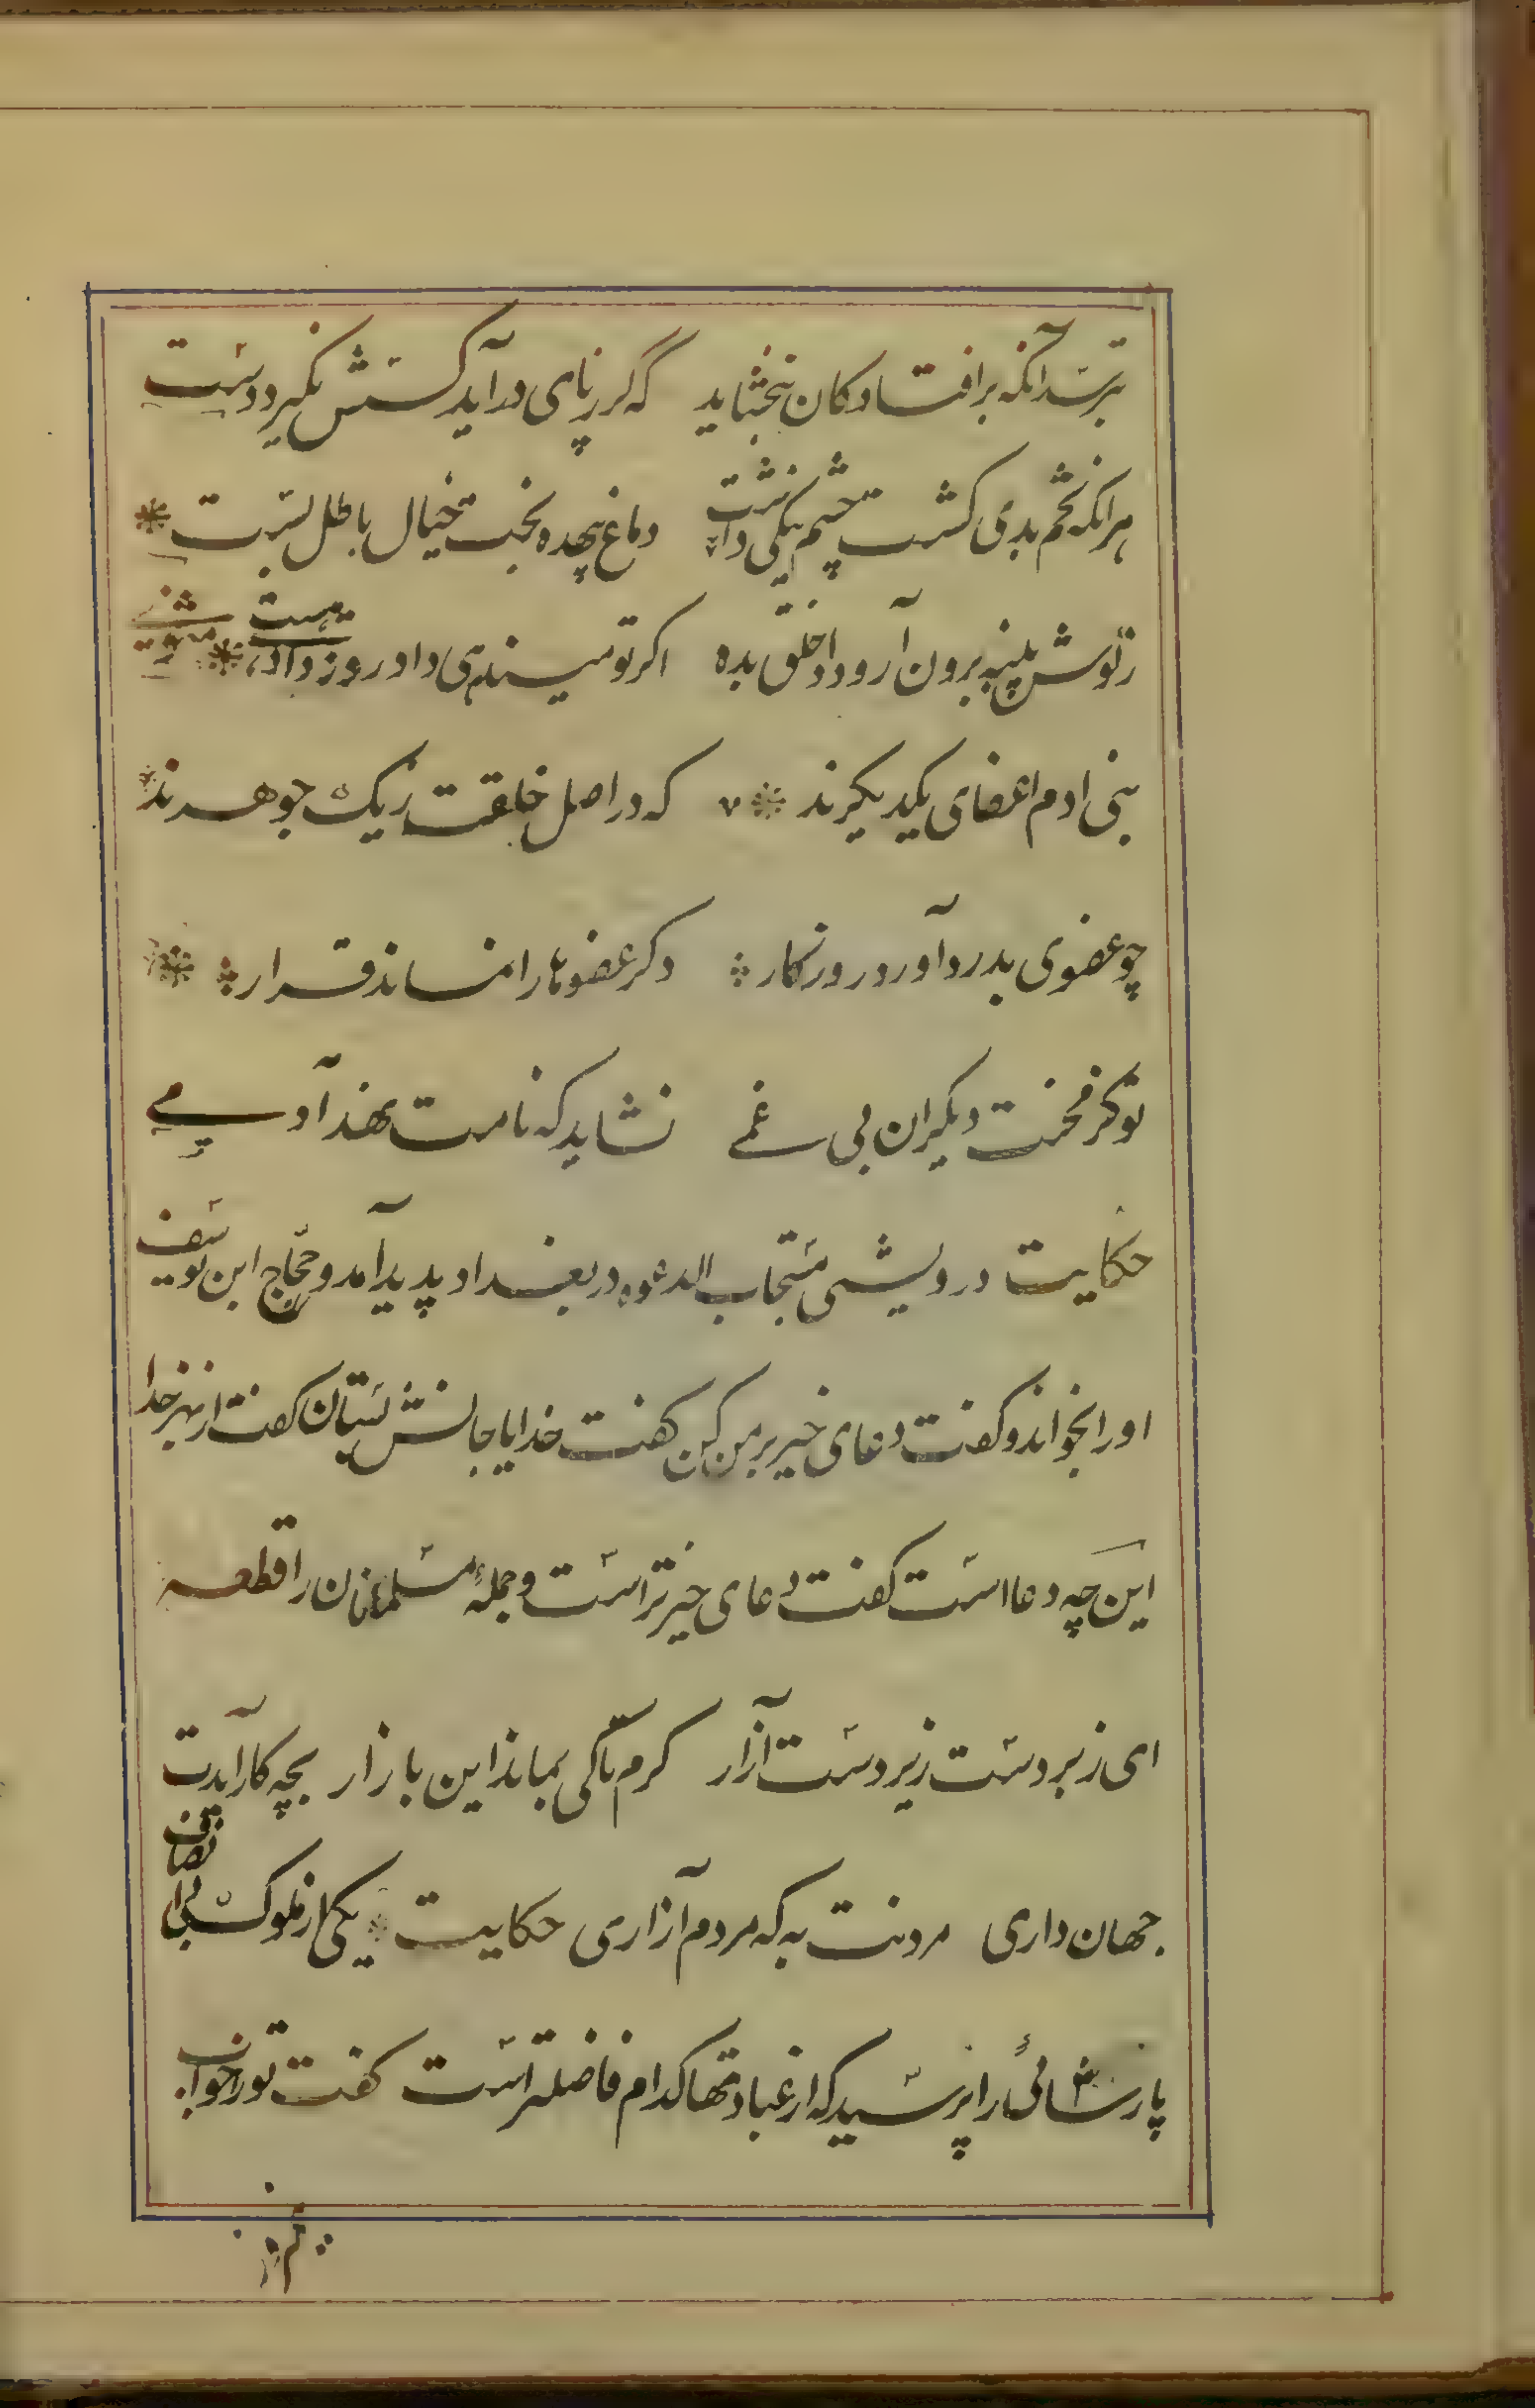 بترسد آنکه برافتادکان نبخشاید که گر زپای درآید کسش نگیرد دست
هرانکه تخم بدی کشت چشم نیکی داشت دماغ بیهده پخت خیال باطل بست
زگوش پنبه برون آر و داد خلق بده اکر تو میندهی داد روز دادی هست مثنوی
بنی ادم اعضای یکدیکرند که در اصل خلقت زیک جوهرند
چو عضوی بدرد آورد روزکار دکر عضوها را نماند قرار
توکز محنت دیکران بی غمی نشاید که نامت نهند آدمی
حکایت درویشی مستجاب الدعوه در بغداد پدید آمد و حجّاج ابن یوسف
اورا بخواند و کفت دعای خیر بر من کن کفت خدایا جانش بستان کفت از بهر خدا
این چه دعا است کفت دعای خیر تراست و جملهٔ مسلمانان را قطعه
ای زبردست زیردست آزار کرم تاکی بماند این بازار بچه کار آیدت
جهان داری مردنت به که مردم آزاری حکایت یکی از ملوک بی انصاف
پارسائی را پرسید که از عبادتها کدام فاضلتر است کفت تورا خواب
نیم